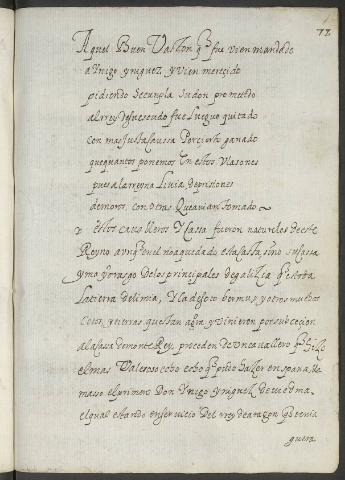 Aquel Buen Vaston q̃ fue vien mandado
a Ynigo yniguez y vien merecido
pidiendo se cunpla su don prometido
al rrey de fuese udo fue luego quitado
con mas justa caussa por cierto ganado
que quantos ponemos en estos Vlasones
pues a la rreyna libia de prisiones
de moros con otras que avian tomado
estos cavalleros y casta fueron naturales deste
Reyno aunq̃ en el no a quedado esta casta sino su cassa
y mayorasgo de los principales de galizia q̃ es toda
la tierra de limia, y la de soto bermud y otros muchos
cotos y tierras que stan aora y vinieron por subcecion
a la casa de monte Rey, proceden de un cavallero q̃ hizo
el mas Valeroso echo q̃ pudo hazer en spaña, lla
masse el primero Don Ynigo yniguez de viedma.
el qual estando en servicio del rrey de aragon q̃ tenia
guerra